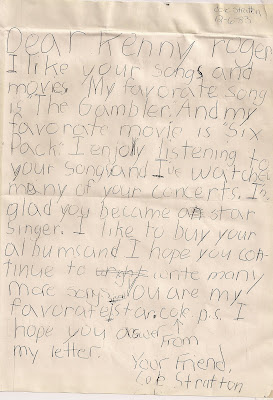 Cole Stratton
12-6-83
Dear Kenny roger
I like your songs and
movies. My favorate song
is The Gambler. And my
favorate movie is Six
Pack. I enjoy listening to
your song and I've watched
many of your concerts. I'm
glad you became a star
singer. I like to buy your
albums and I hope you con-
tinue to write many
more songs. You are my
favorate star. ok. p.s. I
hope you answer From
my letter.
Your Friend,
Cole Stratton